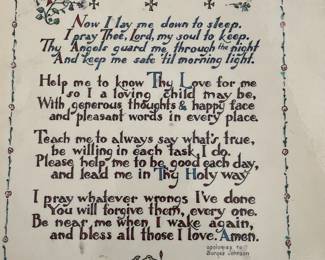 Now I lay me down to sleep.
I pray Thee, Lord, my soul to keep.
Thy Angels guard me through the night
And keep me safe 'til morning light.
Help me to know Thy Love for me
so I a loving child may be,
With generous thoughts & happy face
and pleasant words in every place.
Teach me to always say what's true,
be willing in each task I do,
Please help me to be good each day,
and lead me in Thy Holy way
I pray whatever wrongs I've done
You will forgive them, every one.
Be near me when I wake again,
and bless all those I love. Amen.
apologies to
Burges Johnson